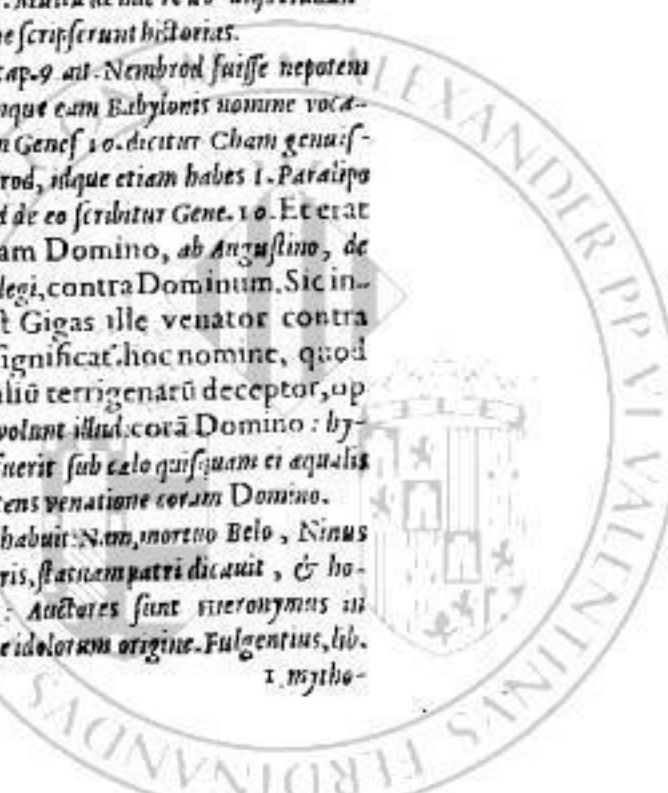 ne scripserunt historias.
cap.9 ait. Nembrod fuisse nepotem
nque eam Babylonis nomine voca-
n Genes 10. dicitur Cham genuis-
rod, idque etiam habes 1. Paralipo
d de eo scribitur Gene. 10. Et erat
am Domino, ab Augustino, de
legi, contra Dominum. Sic in-
t Gigas ille venator contra
ignificat. hoc nomine, quod
aliũ terrigenarũ deceptor, op
volunt illud: corã Domino: hy-
fuerit sub cælo quisquam ei æqualis
tens venatione coram Domino.
habuit: Nam, mortuo Belo, Ninus
ris, statuam patri dicauit, & ho-
: Auctores sunt Hieronymus in
e idolorum origine. Fulgentius, lib.
1. mytho-
ALEXANDER PP VI VALENTINVS FERDINANDVS